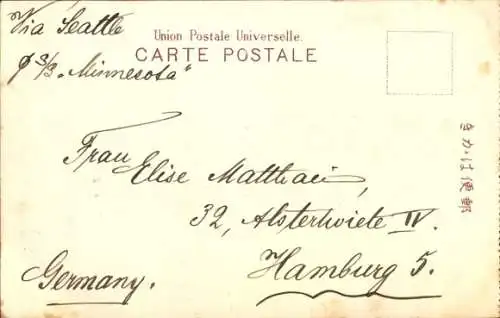 Via Seattle
Union Postale Universelle.
CARTE POSTALE
p S/S "Minnesota"
Frau Elise Matthaei,
32, Alstertwiete IV.
Hamburg 5.
Germany.
きかは便郵